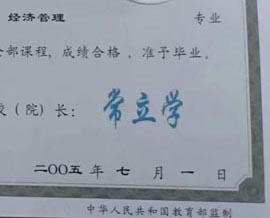 经济管理 专业
部课程，成绩合格，准予毕业。
（院）长：常立学
二〇〇五年七月一日
中华人民共和国教育部监制